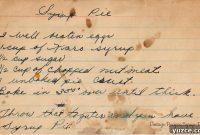 Syrup Pie
3 well beaten eggs
1 cup of Karo syrup
1/2 cup sugar
1/2 cup of chopped nut meat
1 unbaked pie crust
Bake in 350° oven until thick.
Throw that together and you have
Syrup Pie
yuzce.com